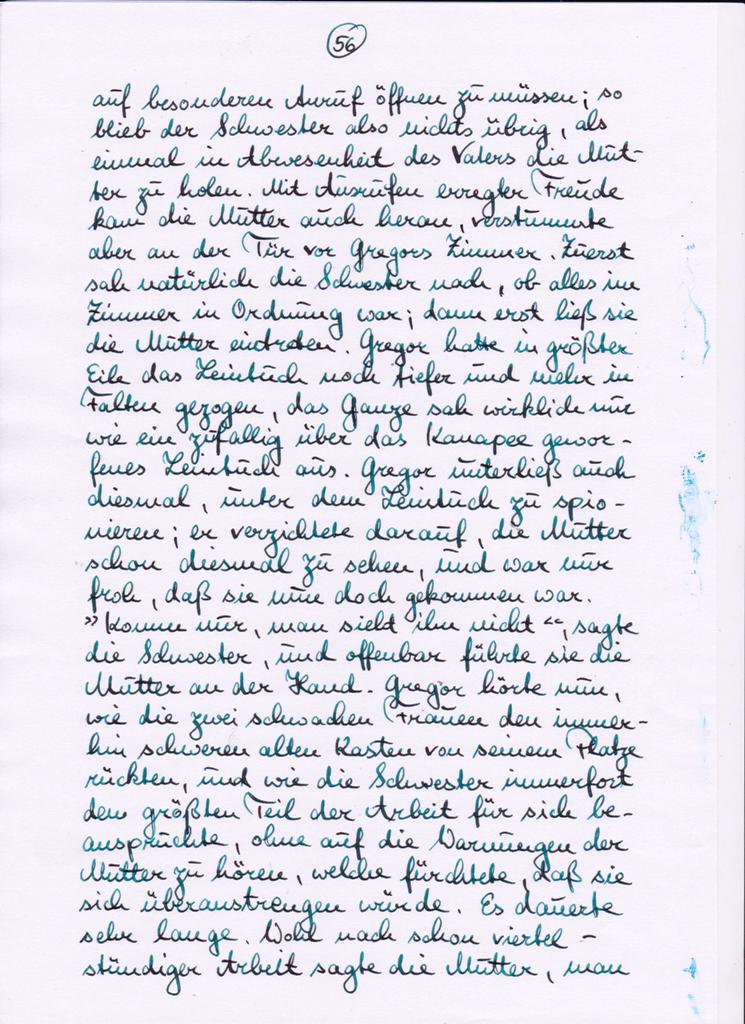 56
auf besonderen Anruf öffnen zu müssen; so
blieb der Schwester also nichts übrig, als
einmal in Abwesenheit des Vaters die Mut-
ter zu holen. Mit Ausrufen erregter Freude
kam die Mutter auch heran, verstummte
aber an der Tür vor Gregors Zimmer. Zuerst
sah natürlich die Schwester nach, ob alles im
Zimmer in Ordnung war; dann erst ließ sie
die Mutter eintreten. Gregor hatte in größter
Eile das Leintuch noch tiefer und mehr in
Falten gezogen, das Ganze sah wirklich nur
wie ein zufällig über das Kanapee gewor-
fenes Leintuch aus. Gregor unterließ auch
diesmal, unter dem Leintuch zu spio-
nieren; er verzichtete darauf, die Mutter
schon diesmal zu sehen, und war nur
froh, daß sie nun doch gekommen war.
»Komm nur, man sieht ihn nicht«, sagte
die Schwester, und offenbar führte sie die
Mutter an der Hand. Gregor hörte nun,
wie die zwei schwachen Frauen den immer-
hin schweren alten Kasten von seinem Platze
rückten, und wie die Schwester immerfort
den größten Teil der Arbeit für sich be-
anspruchte, ohne auf die Warnungen der
Mutter zu hören, welche fürchtete, daß sie
sich überanstrengen würde. Es dauerte
sehr lange. Wohl nach schon viertel-
stündiger Arbeit sagte die Mutter, man